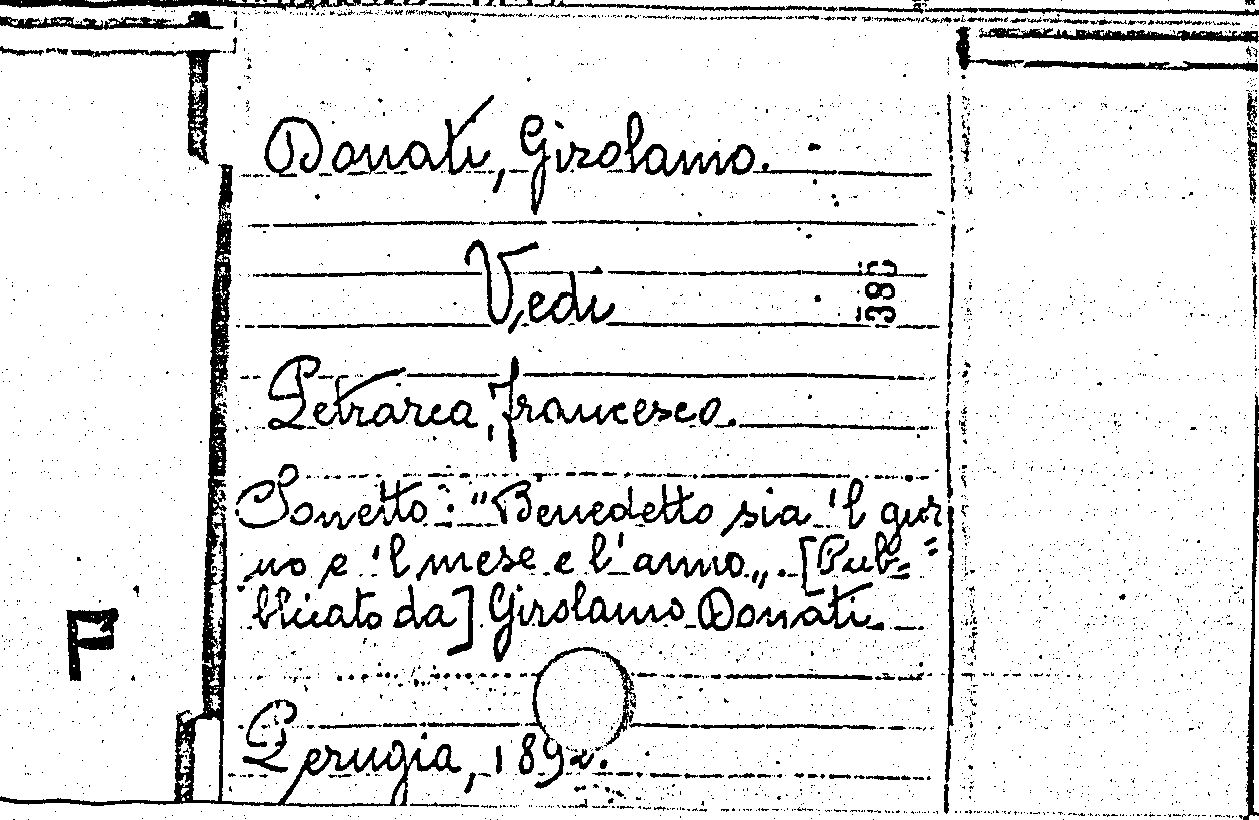 Donati, Girolamo.
Vedi
385
Petrarca, Francesco.
Sonetto: "Benedetto sia 'l gior=
no e 'l mese e l'anno„. [Pub=
blicato da] Girolamo Donati.
P
Perugia, 1892.